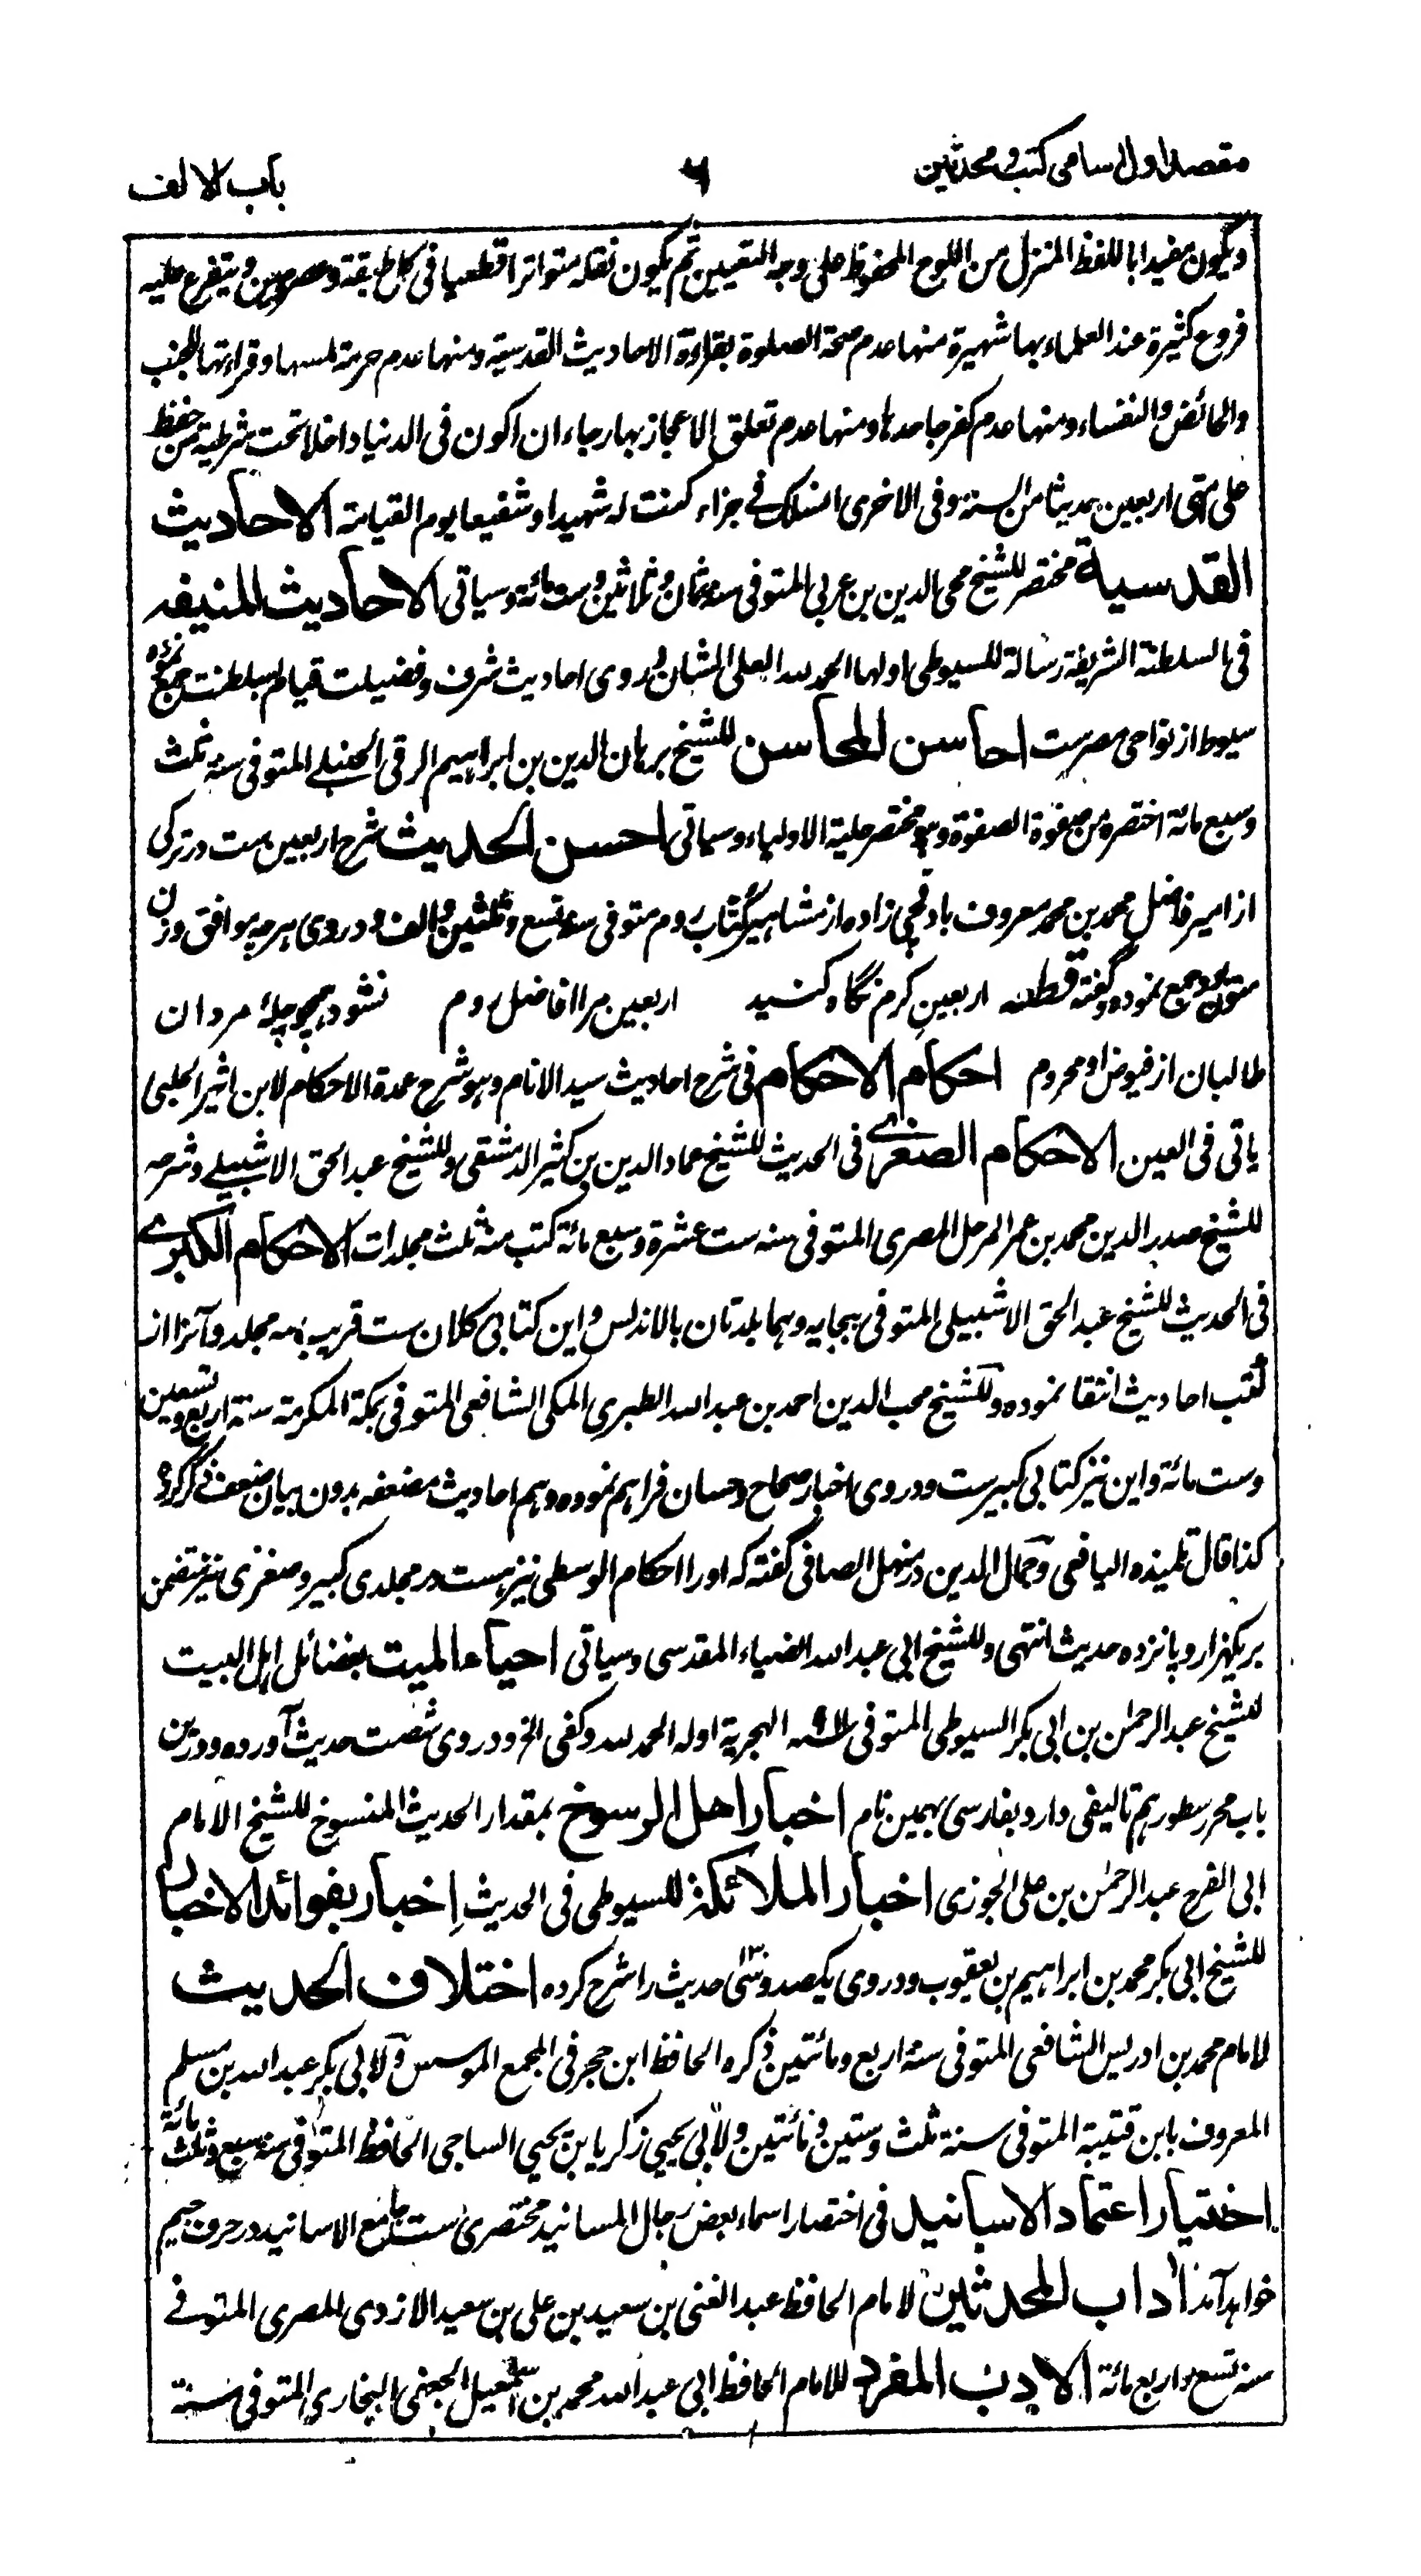 مقصد اول اسامی کتب و محدثین
۶
باب الالف
ویکون مفیدا باللفظ المنزل من اللوح المحفوظ علی وجه التعیین ثم یکون نقله متواترا قطعیا فی کل طبقة وعصر وحین ویتفرع علیه
فروع کثیرة عند العلماء بها شهیرة منها عدم صحة الصلوة بقراءة الاحادیث القدسیة ومنها عدم حرمة لمسها وقراءتها للجنب
والحائض والنفساء ومنها عدم کفر جاحدها ومنها عدم تعلق الاعجاز بها رجاء ان اکون فی الدنیا داخلا تحت شرطیة من حفظ
علی امتی اربعین حدیثا من السنة وفی الاخری انسلک فی جزاء کنت له شهیدا وشفیعا یوم القیامة الاحادیث
القدسیة مختصر للشیخ محی الدین بن عربی المتوفی سنة ثمان وثلاثین وست مائة وسیاتی الاحادیث المنیفه
فی السلطنة الشریفة رسالة للسیوطی اولها الحمد لله العلی الشان در وی احادیث شرف و فضیلت قیام بسلطنت جمع نموده
سیوط از نواحی مصرست احاسن المحاسن للشیخ برهان الدین بن ابراهیم الرقی الحنبلے المتوفی سنه ثلث
وسبع مائة اختصره من صفوة الصفوة وهو مختصر حلیة الاولیاء وسیاتی احسن الحدیث شرح اربعین ست در ترکی
از امیر فاضل محمد بن محمد معروف باوقجی زاده از مشاهیر کتاب روم متوفی سنه تسع وثلثین والف ودر وی هرچه موافق وزن
ستوده جمع نموده وگفته قطعه اربعینِ کرم نگاه کنید اربعین مرا افاضل روم نشود همچو چلهٔ مردان
طالبان از فیوض او محروم احکام الاحکام فی شرح احادیث سید الانام وهو شرح عمدة الاحکام لابن اثیر الحلبی
یاتی فی العین الاحکام الصغرے فی الحدیث للشیخ عماد الدین بن کثیر الدمشقی وللشیخ عبد الحق الاشبیلے وشرحه
للشیخ صدر الدین محمد بن عمر المرحل المصری المتوفی سنه ست عشرة وسبع مائة کتب منه ثلث مجلدات الاحکام الکبرے
فی الحدیث للشیخ عبد الحق الاشبیلی المتوفی ببجایه وهما بلدتان بالاندلس و این کتابی کلان ست قریب به سه مجلد و آنرا از
کتب احادیث انتقا نموده وللشیخ محب الدین احمد بن عبد الله الطبری المکی الشافعی المتوفی بمکة المکرمة سنة اربع وتسعین
وست مائة و این نیز کتابی کبیرست و در وی اخبار صحاح وحسان فراهم نموده و هم احادیث مضعفه بدون بیان ضعف ذکر کرده
کذا قال تلمیذه الیافعی وجمال الدین در منهل الصافی گفته که او را احکام الوسطی نیز هست در مجلدی کبیر و صغری نیز متضمن
بر یکهزار و پانزده حدیث انتهی وللشیخ ابی عبد الله الضیاء المقدسی وسیاتی احیاء المیت بفضائل اهل البیت
للشیخ عبد الرحمٰن بن ابی بکر السیوطی المتوفی سنه ۹۱۱ الهجریة اوله الحمد لله وکفی الخ و در وی شصت حدیث آورده و درین
باب محرر سطور هم تالیفی دارد بفارسی بهمین نام اخبار اهل الرسوخ بمقدار الحدیث المنسوخ للشیخ الامام
ابی الفرج عبد الرحمٰن بن علی الجوزی اخبار الملائکة للسیوطی فی الحدیث إخبار بفوائد الاخبار
للشیخ ابی بکر محمد بن ابراهیم بن یعقوب و در وی یکصد و سی حدیث را شرح کرده اختلاف الحدیث
للامام محمد بن ادریس الشافعی المتوفی سنه اربع ومائتین ذکره الحافظ ابن حجر فی المجمع الموسس ولابی بکر عبد الله بن مسلم
المعروف بابن قتیبة المتوفی سنة ثلث وستین ومائتین ولابی یحیی زکریا بن یحیی الساجی الحافظ المتوفی سنه سبع وثلث مائة
اختیار اعتماد الاسانید فی اختصار اسماء بعض رجال المسانید مختصری ست جامع الاسانید در حرف جیم
خواهد آمد اٰداب المحدثین لامام الحافظ عبد الغنی بن سعید بن علی بن سعید الازدی المصری المتوفے
سنه تسع واربع مائة الادب المفرد للامام الحافظ ابی عبد الله محمد بن اسمٰعیل الجعفی البخاری المتوفی سنة